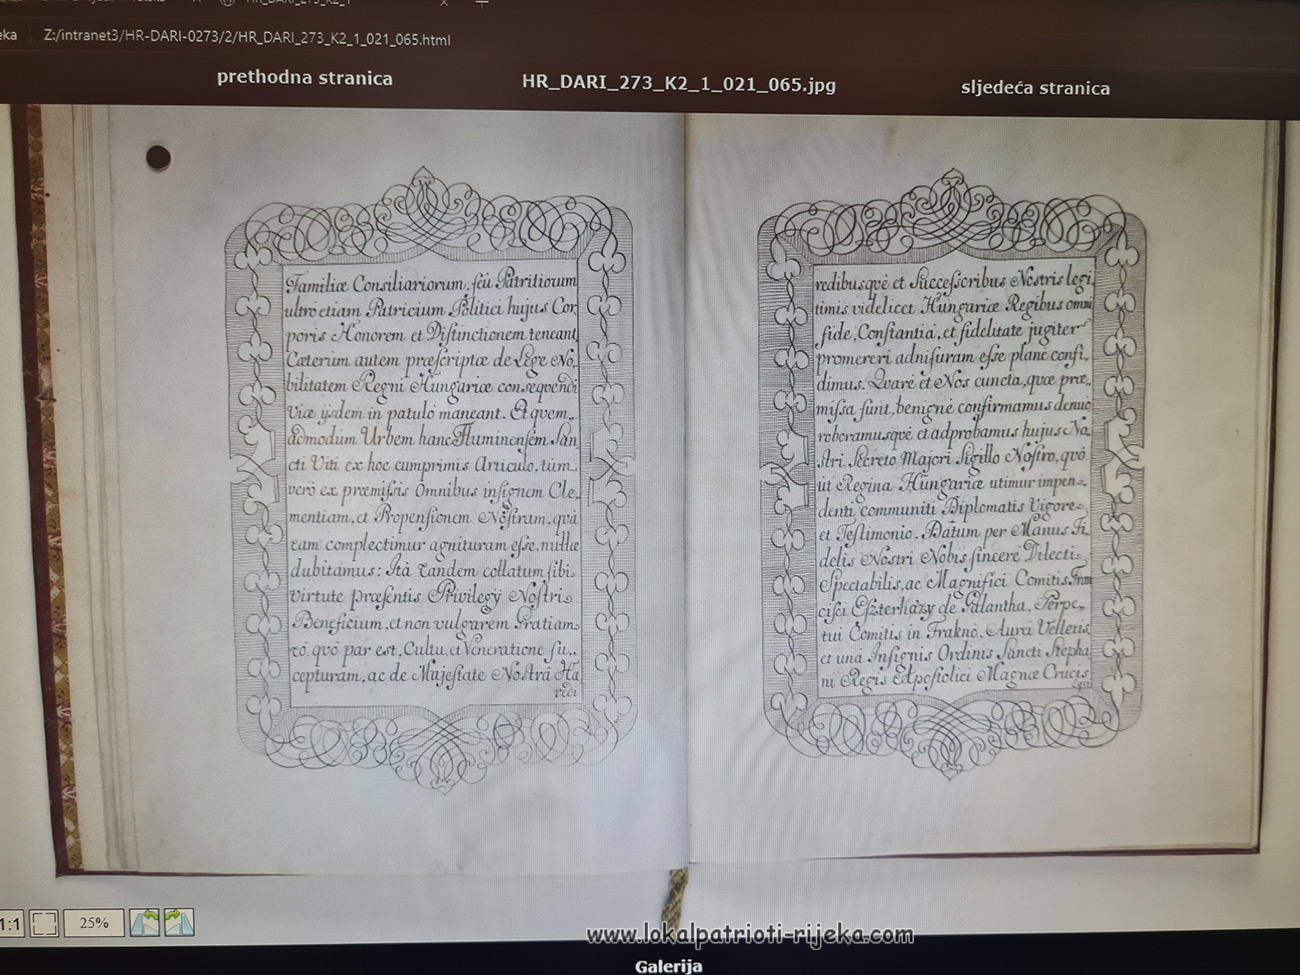 HR_DARI_273_K2_1
eka
Z:/intranet3/HR-DARI-0273/2/HR_DARI_273_K2_1_021_065.html
prethodna stranica
HR_DARI_273_K2_1_021_065.jpg
sljedeća stranica
Familiæ Consiliariorum, seu Patritiorum
ultro etiam Patricium Politici hujus Cor
poris Honorem et Distinctionem teneant
Cæterum autem præscriptæ de Lege No,
bilitatem Regni Hungariæ consequendi
Viæ ijsdem in patulo maneant. Et quem,
admodum Urbem hanc Fluminensem San
cti Viti ex hoc cumprimis Articulo, tum
vero ex præmissis Omnibus insignem Cle,
mentiam, et Propensionem Nostram, quâ
eam complectimur agnituram esse, nullæ
dubitamus: Ità tandem collatum sibi
virtute præsentis Privilegÿ Nostri
Beneficium, et non vulgarem Gratiam
eô quô par est, Cultu, et Veneratione su,,
cepturam, ac de Majestate Nostrâ Hæ
redi
redibusqvè et Successoribus Nostris legi,
timis videlicet Hungariæ Regibus omni
fide, Constantia, et fidelitate jugiter
promereri adnisuram esse planè confi,
dimus. Qvarè et Nos cuncta, quæ præ,
missa sunt, benignè confirmamus denuò
roboramusqvè et adprobamus hujus No,
stri Secreto Majori Sigillo Nostro, quô
ùt Regina Hungariæ utimur impen,
denti communiti Diplomatis Vigore
et Testimonio. Datum per Manus Fi,
delis Nostri Nobis sincerè Dilecti
Spectabilis, ac Magnifici Comitis Fran
cisci Eszterházy de Galantha, Perpe,
tui Comitis in Frakno, Aurei Velleris
et unà Insignis Ordinis Sancti Stepha
ni Regis Apostolici Magnæ Crucis
Equi
1:1
25%
www.lokalpatrioti-rijeka.com
Galerija